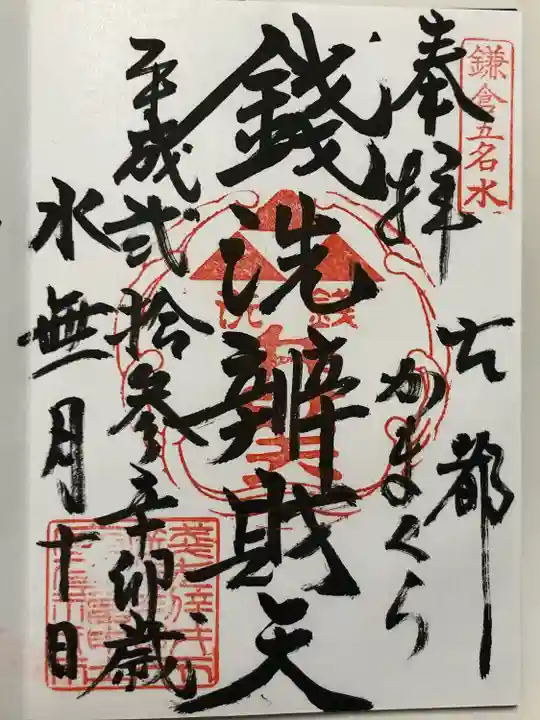 鎌倉五名水
奉拝
古都
かまくら
銭洗辨財天
銭洗
平成弐拾参辛卯歳
水無月十日